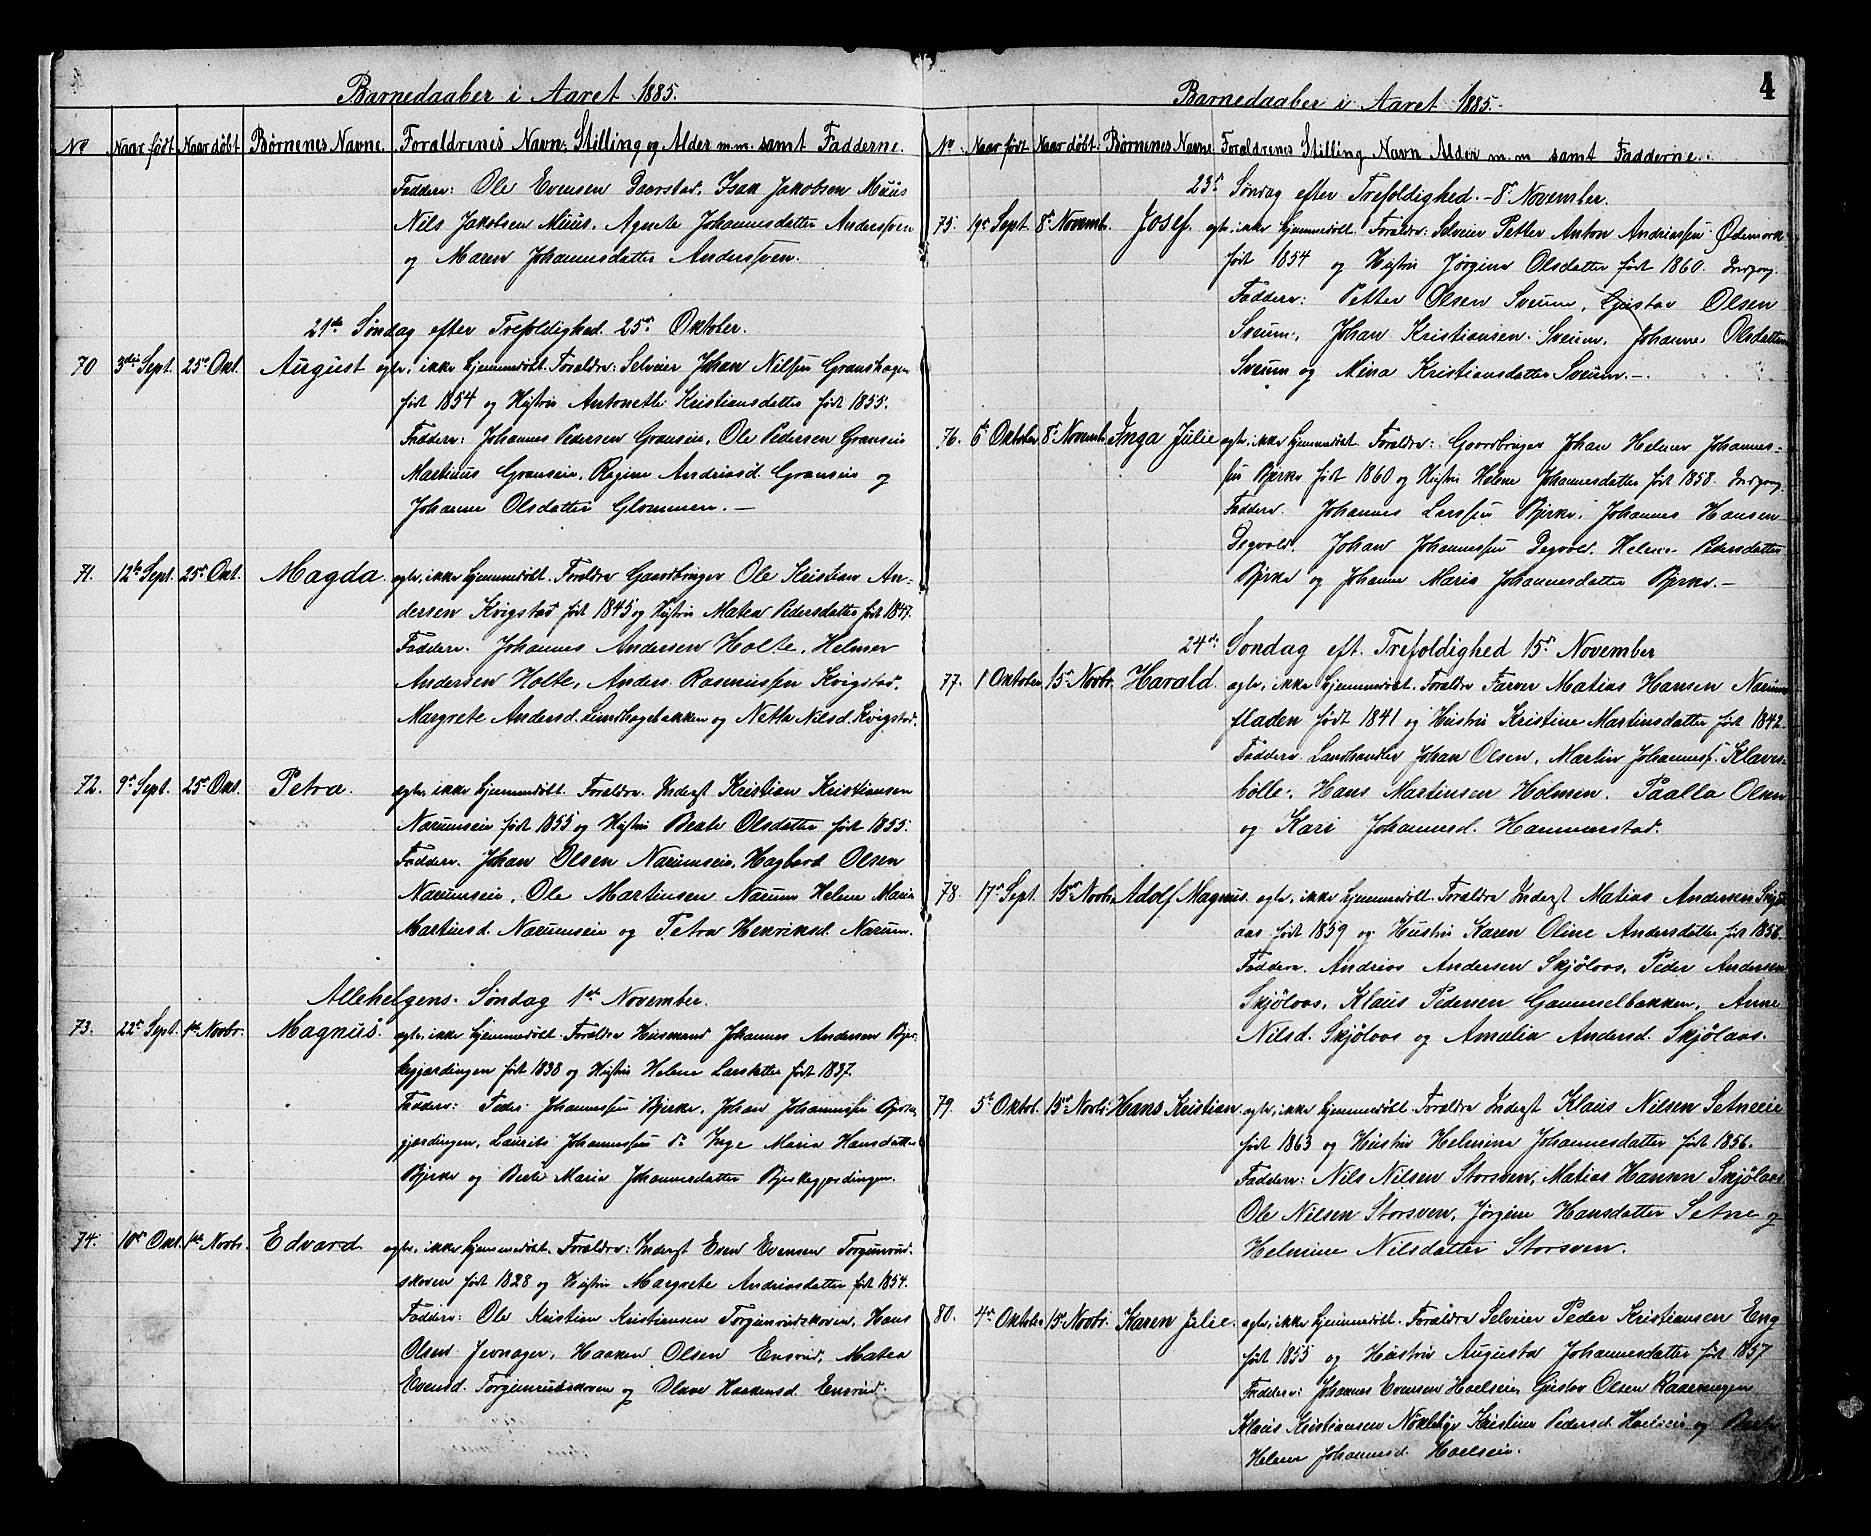 Barnedaaber i Aaret 1885.
No Naar født Naar døbt Børnenes Navne. Forældrenes Navn, Stilling og Alder m.m. samt Fadderne.
Faddere: Ole Evensen Paarstad, Isak Jakobsen Muus
Nils Jakobsen Muus, Agnete Johannesdatter
og Maren Johannesdatter
21de Søndag efter Trefoldighed 25de Oktober.
70 3die Sept. 25de Okt. August ægte, ikke hjemmedøbt. Forældre: Selveier Johan Nilsen Granshagen
født 1854 og Hustru Antonette Kristiansdatter født 1855.
Faddere: Johannes Pedersen Granseie, Ole Pedersen Granseie
Martinus Granseie, Regine Andriasd. Granseie og
Johanne Olsdatter Glommen.-
71. 12te Sept. 25de Okt. Magda. ægte, ikke hjemmedøbt. Forældre Gaardbruger Ole Kristian An-
dersen Kvigstad født 1845 og Hustru Matea Pedersdatter født 1847.
Faddere. Johannes Andersen Holte, Helmer
Andersen Holte, Anders Rasmussen Kvigstad,
Margrete Andersd. Lundhagebakken og Nette Nilsd. Kvigstad.
72. 9de Sept. 25de Okt. Petra. ægte, ikke hjemmedøbt. Forældre. Inderst Kristian Kristiansen
Narumseie født 1855 og Hustru Beate Olsdatter født 1855.
Faddere. Johan Olsen Narumseie, Hagbard Olsen
Narumseie, Ole Martinsen Narum Helene Marie
Martinsd. Narumseie og Petra Henriksd. Narum.
Allehelgens Søndag 1ste November.
73. 22de Sept. 1ste Novbr. Magnus. ægte, ikke hjemmedøbt. Forældre Husmand Johannes Andersen Bjer-
kegjærdingen født 1838 og Hustru Helene Larsdatter født 1837.
Faddere: Peder Johannessen Bjerke, Johan Johannessen Bjerke-
gjærdingen, Laurits Johannessen do Inge Maria Hansdatter
Bjerke og Berte Marie Johannesdatter Bjerkegjærdingen.
74. 10de Okt. 1ste Novbr. Edvard ægte, ikke hjemmedøbt. Forældre: Inderst Even Evensen Torgunrud-
skoven født 1828 og Hustru Margrete Andriasdatter født 1854.
Faddere: Ole Kristian Kristiansen Torgunrudskoven, Hans
Olsen Jevnager, Haaken Olsen Ensrud, Matea
Evensd. Torgunrudskoven og Olave Haakensd. Ensrud.
Barnedaaber i Aaret 1885. 4
No. Naar født Naar døbt. Børnenes Navne Forældrenes Stilling Navn Alder m.m samt Fadderne.
23de Søndag efter Trefoldighed.- 8de November.
75. 19de Sept. 8de Novemb. Josef. ægte, ikke hjemmedøbt. Forældre: Selveier Petter Anton Andriassen Ødemark
født 1854 og Hustru Jørgine Olsdatter født 1860.
Faddere: Petter Olsen Sveum, Gustav Olsen
Sveum, Johan Kristiansen Sveum, Johanne Olsdatter
Sveum og Mina Kristiansdatter Sveum.-
76. 6te Oktober 8de Novemb. Inga Julie ægte, ikke hjemmedøbt. Forældre: Gaardbruger Johan Helmer Johannes-
sen Bjerke født 1860 og Hustru Helene Johannesdatter født 1858.
Faddere. Johannes Larssen Bjerke, Johannes Hansen
Degvold, Johan Johannessen Degvold, Helene Pedersdatter
Bjerke og Johanne Marie Johannesdatter Bjerke.-
24de Søndag eft. Trefoldighed 15de November
77. 1 Oktober 15de Novbr. Harald. ægte, ikke hjemmedøbt. Forældre Farver Matias Hansen Narum-
fladen født 1841 og Hustru Kristine Martinsdatter født 1842.
Faddere. Landhandler Johan Olsen, Martin Johanness. Klæves-
bølle, Hans Martinsen Holmen, Paalla Olsen
og Kari Johannesd. Hammerstad.
78. 17de Sept. 15de Novbr. Adolf Magnus. ægte, ikke hjemmedøbt. Forældre Inderst Matias Andersen Skjøl-
aas født 1859 og Hustru Karen Oline Andersdatter født 1856.
Faddere. Andreas Andersen Skjølaas, Peder Andersen
Skjølaas, Klaus Pedersen Gammelbakken, Anne
Nilsd. Skjølaas og Amalie Andersd. Skjølaas.
79. 5te Oktob. 15de Novbr. Hans Kristian. ægte, ikke hjemmedøbt. Forældre Inderst Klaus Nilsen Setneeie
født 1863 og Hustru Helmine Johannesdatter født 1856.
Faddere: Nils Nilsen Storsven, Matias Hansen Skjølaas
Ole Nilsen Storsven, Jørgine Hansdatter Setne og
Helmine Nilsdatter Storsven.
80. 4de Oktober 15de Novbr. Karen Julie. ægte, ikke hjemmedøbt. Forældre Selveier Peder Kristiansen Eng
født 1855 og Hustru Augusta Johannesdatter født 1857
Faddere: Johannes Evensen Hoelseie, Gustav Olsen
Klaus Kristiansen Nøkleby, Kristine Pedersd. Hoelseie og Berte
Helene Johannesd. Hoelseie.